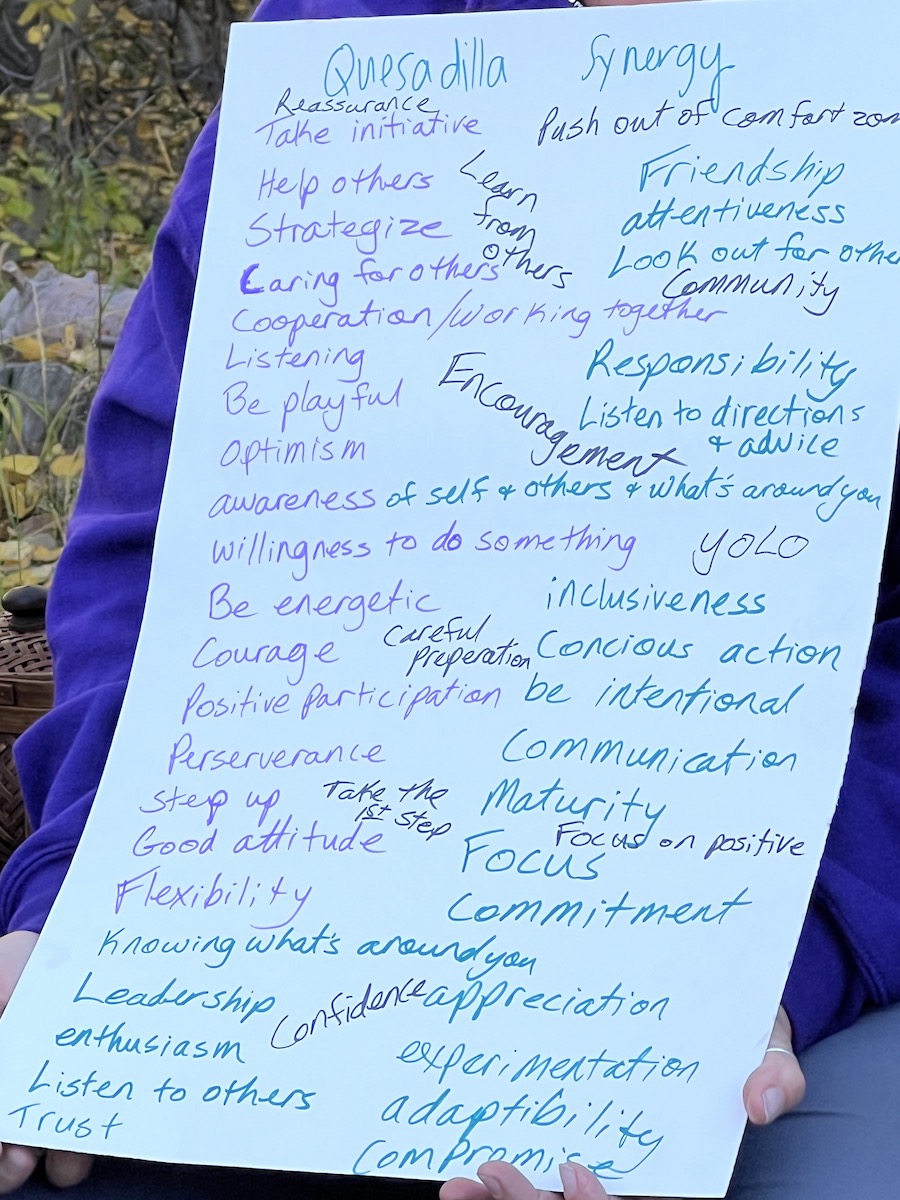 Quesadilla Synergy
Reassurance
Take initiative
Push out of comfort zon
Help others
Learn
from
others
Friendship
Strategize
attentiveness
Caring for others
Look out for other
Community
Cooperation/working together
Listening
Responsibility
Be playful
Encouragement
Listen to directions
& advice
Optimism
awareness of self & others & what's around you
willingness to do something
YOLO
Be energetic
inclusiveness
Courage
Careful
preperation
Concious action
Positive Participation
be intentional
Perserverance
Communication
Step up
Take the
1st Step
Maturity
Good attitude
Focus on positive
Focus
Flexibility
Commitment
Knowing what's around you
Leadership
Confidence
appreciation
enthusiasm
experimentation
Listen to others
adaptibility
Trust
Compromise